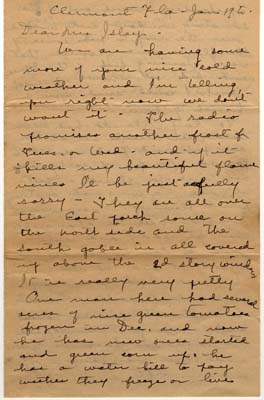 Clermont Fla - Jan 19th.
Dear Mrs Islay.
We are having some
more of your nice cold
weather and I'm telling
you right now we don't
want it - The radio
promises another frost for
Tues. or Wed - and if it
kills my beautiful flame
vines I'll be just awfully
sorry - They are all over
the East porch some on
the north side and the
south gable in all covered
up above the 2d story windows
It is really very pretty
One man here had several
acres of nice green tomatoes
frozen in Dec. and now
he has new ones started
and green corn up. he
has a water bill to pay
wether they freeze or live